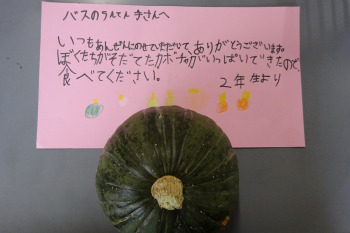 バスのうんてん手さんへ
いつもあんぜんにのせていただいて、ありがとうございます。
ぼくたちがそだてたカボチャがいっぱいできたので、
食べてください。
2年生より